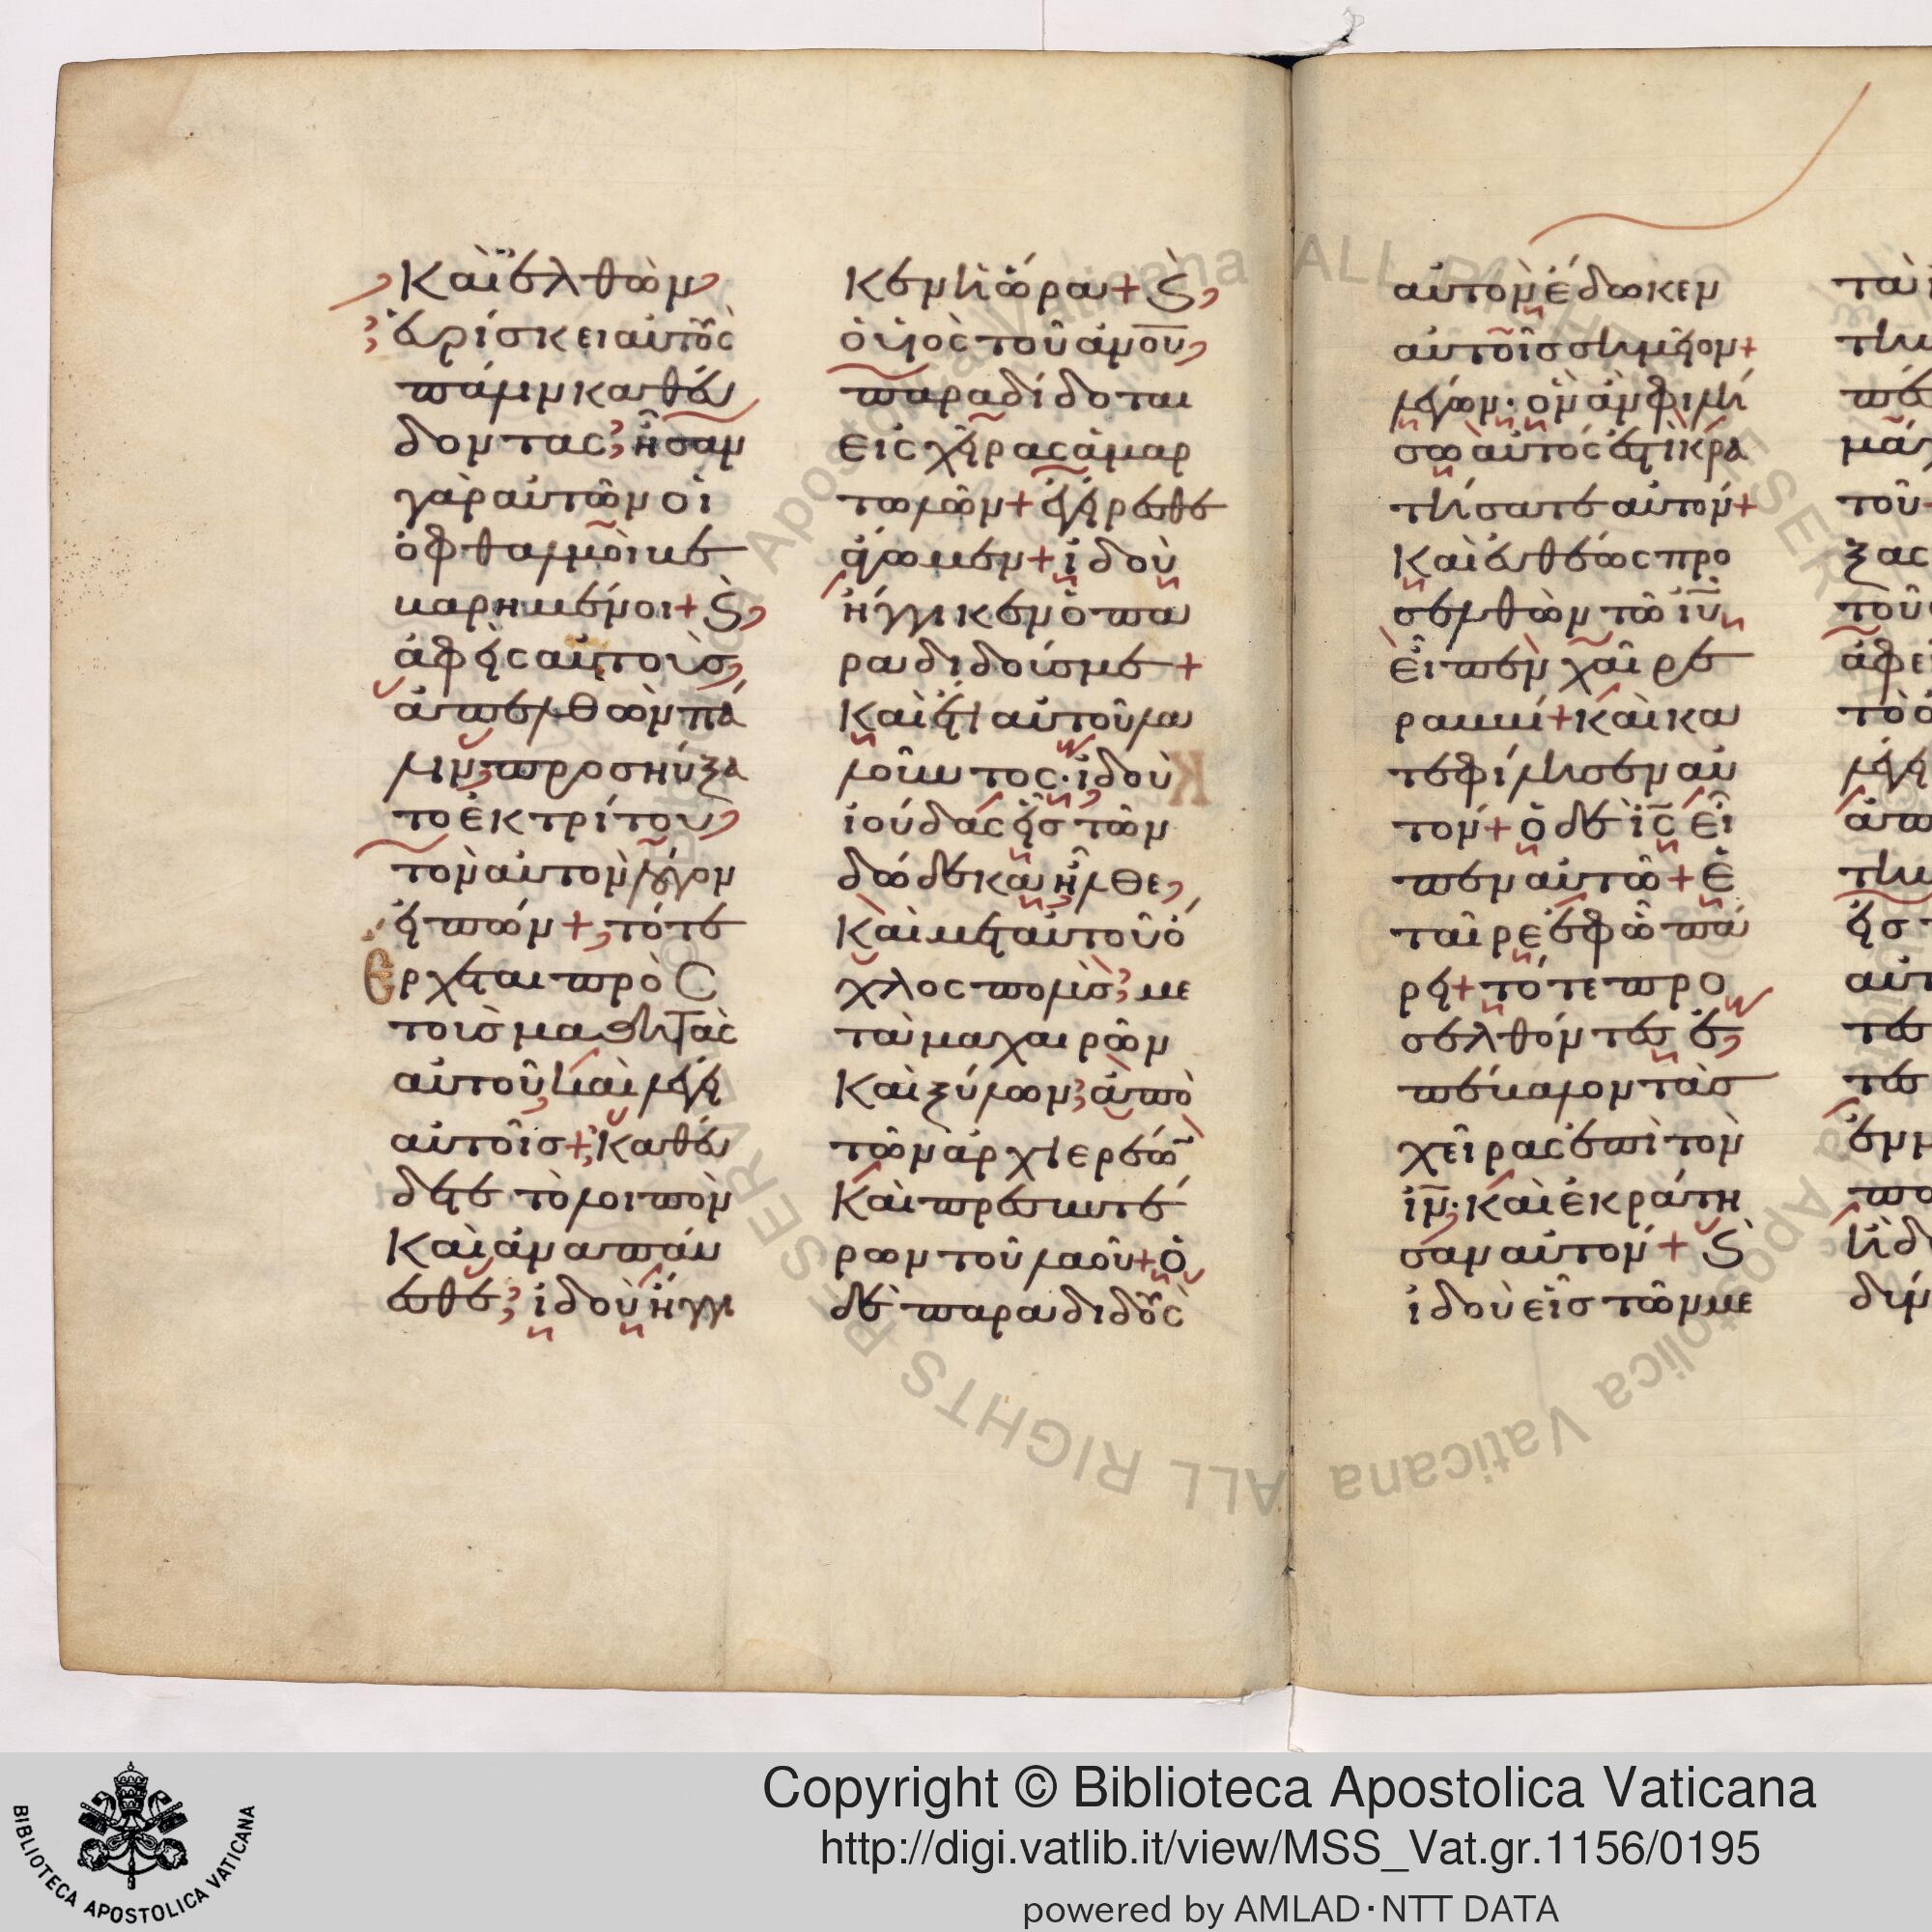 Καὶ ἐλθὼν
εὑρίσκει αὐτοὺς
πάλιν καθεύ
δοντας· ἦσαν
γὰρ αὐτῶν οἱ
ὀφθαλμοὶ βε
βαρημένοι + Ϛ
ἀφεὶς αὐτοὺς
ἀπελθὼν πά
λιν προσηύξα
το ἐκ τρίτου
τὸν αὐτὸν λόγον
εἰπών + τότε
Ερχεται πρὸς
τοὺς μαθητὰς
αὐτοῦ καὶ λέγει
αὐτοῖς + Καθεύ
δετε τὸ λοιπὸν
Καὶ ἀναπαύ
εσθε· ἰδοὺ ἤγγι
κεν ἡ ὥρα + Ϛ
ὁ υἱὸς τοῦ ἀνου
παραδίδοται
εἰς χεῖρας ἁμαρ
τωλῶν + ἐγείρεσθε
ἄγωμεν + ἰδοὺ
ἤγγικεν ὁ πα
ραδιδούς με +
Καὶ ἔτι αὐτοῦ λα
λοῦντος· ἰδοὺ
ἰούδας εἷς τῶν
δώδεκα ἦλθε,
Καὶ μετ αὐτοῦ ὄ
χλος πολὺς· με
τὰ μαχαιρῶν
Καὶ ξύλων· ἀπὸ
τῶν ἀρχιερέω
Καὶ πρεσβυτέ
ρων τοῦ λαοῦ + ὁ
δὲ παραδιδοὺς
αὐτὸν ἔδωκεν
αὐτοῖς σημεῖον +
λέγων· ὃν ἂν φιλή
σω αὐτός ἐστι κρα
τήσατε αὐτόν +
Καὶ εὐθέως προ
σελθὼν τῶ ιυ
εἶπεν χαῖρε
ραββί + Καὶ κα
τεφίλησεν αὐ
τόν + ὁ δὲ ις εἶ
πεν αὐτῶ + Ἑ
ταῖρε ἐφ ὧ πά
ρει + τότε προ
σελθόντες ἐ
πέβαλον τὰς
χεῖρας ἐπὶ τὸν
ιν· Καὶ ἐκράτη
σαν αὐτόν + Ϛ
ἰδοὺ εἷς τῶν με
ALL RIGHTS RESERVED
Biblioteca Apostolica Vaticana
BIBLIOTECA APOSTOLICA VATICANA
Copyright © Biblioteca Apostolica Vaticana
http://digi.vatlib.it/view/MSS_Vat.gr.1156/0195
powered by AMLAD·NTT DATA